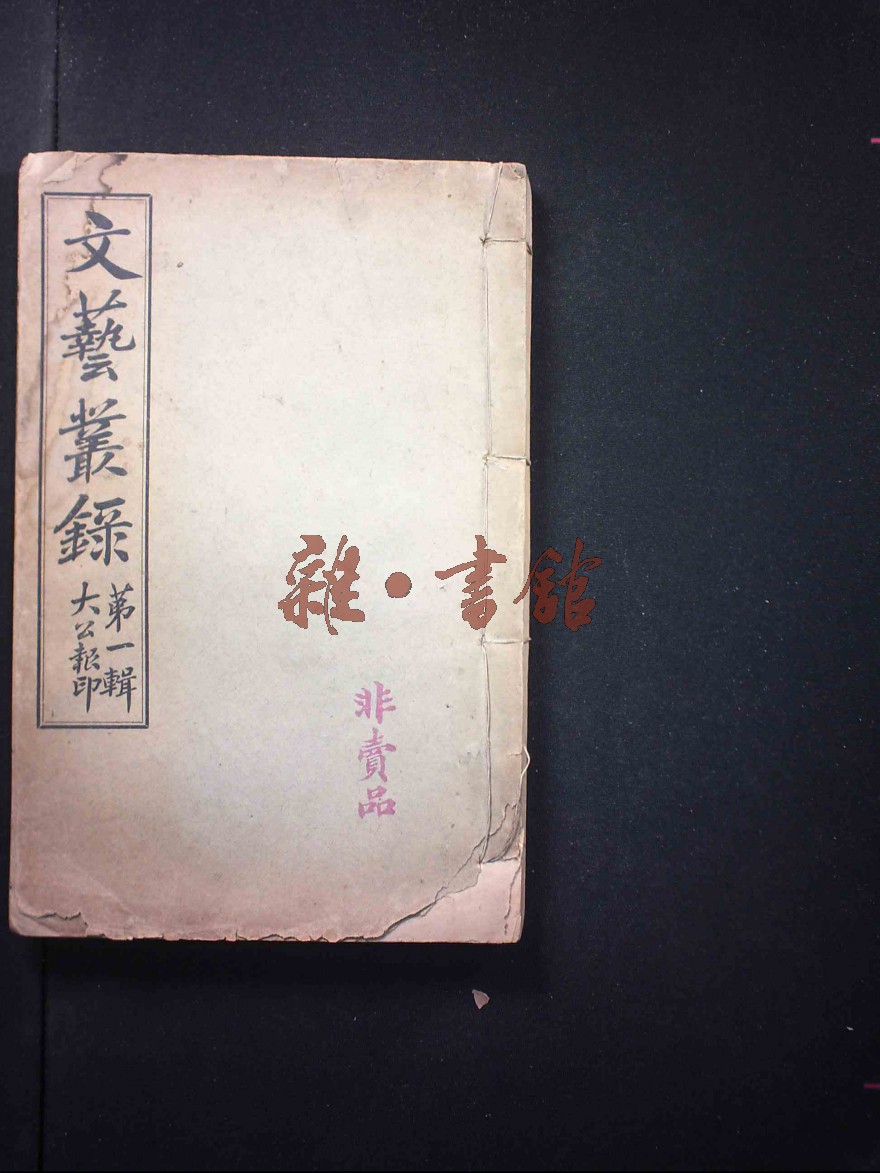 文藝叢錄
第一輯
大公報印
非賣品
雜·書館